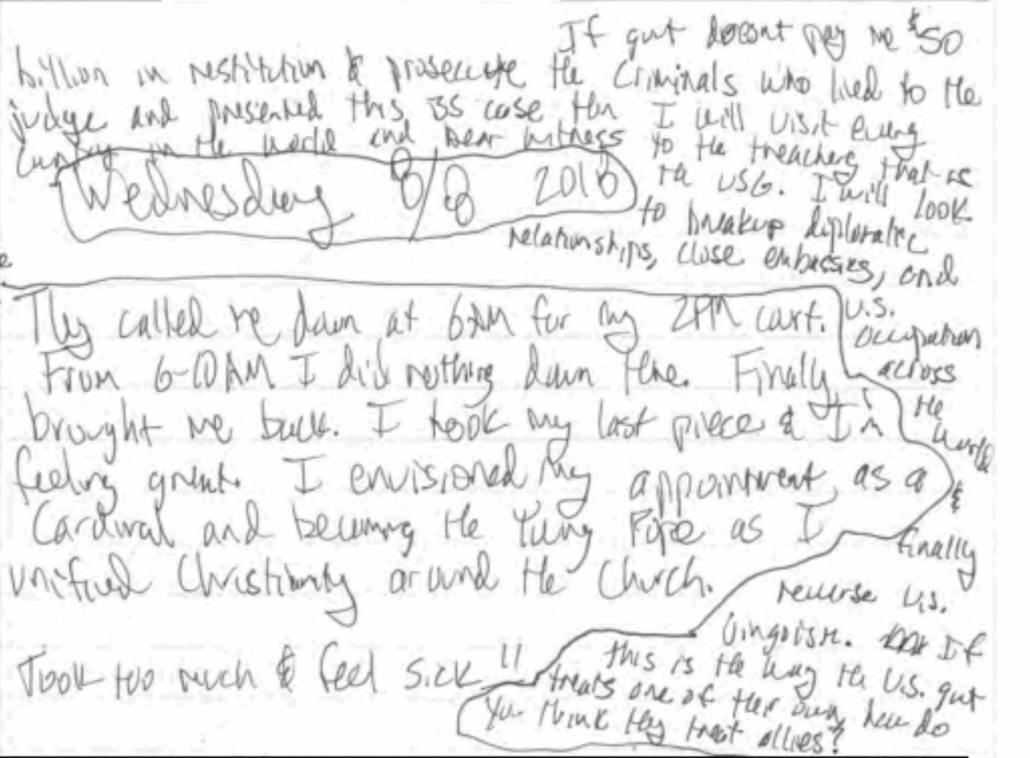 If guvt doesnt pay me $50
billion in restitution & prosecute the criminals who lied to the
judge and presented this BS case then I will visit every
country in the world and bear witness to the treachery that is
the USG. I will look
to breakup diplomatic
relationships, close embassies, and
U.S.
occupation
across
the
world
&
finally
reverse U.S.
Jingoism. If
this is the way the U.S. guvt
treats one of their own, how do
you think they treat allies?
Wednesday 8/8 2018
They called me down at 6AM for my 2PM court.
From 6-10AM I did nothing down there. Finally
brought me back. I took my last piece & I'm
feeling great. I envisioned my appointment, as a
Cardinal and becoming the Young Pope as I
unified Christianity around the Church.
Took too much & feel sick!!